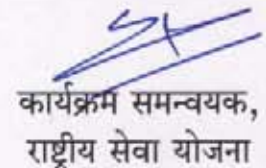 कार्यक्रम समन्वयक,
राष्ट्रीय सेवा योजना